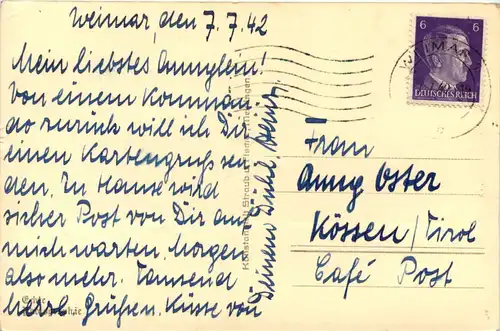 Weimar, den 7.7.42
Mein liebstes Annylein!
Von einem Komman
do zurück will ich Dir
einen Kartengruss sen
den. Zu Hause wird
sicher Post von Dir auf
mich warten, morgen
also mehr. Tausend
herzl. Grüßen. Küsse von
Deinem
Frau
Anny Oster
Kössen/Tirol
Café Post
6 6
DEUTSCHES REICH
WEIMAR
Echte